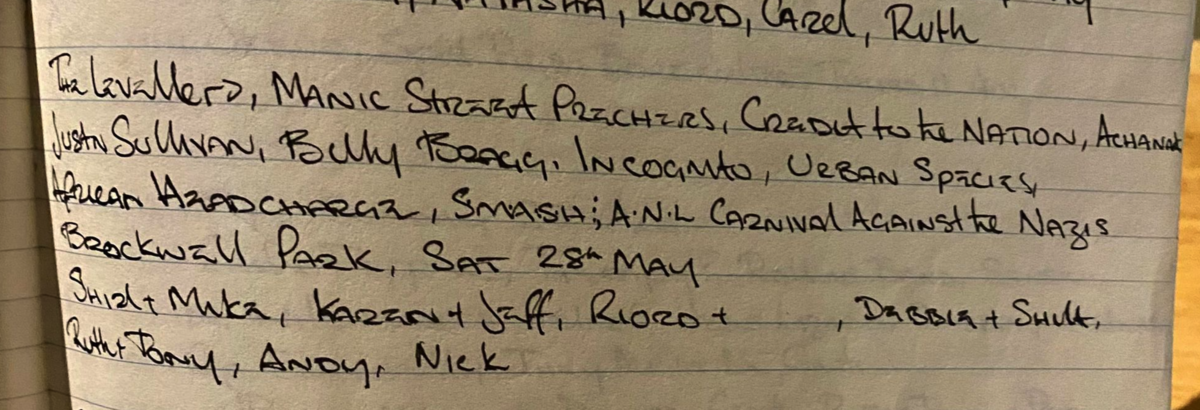 NATASHA, RIORD, CAROL, RUTH
The Levellers, MANIC STREET PREACHERS, CREDIT to the NATION, ACHANAK
JUSTIN SULLIVAN, Billy BRAGG, INCOGNITO, URBAN SPECIES,
African HEADCHARGE, SMASH; A.N.L CARNIVAL AGAINST the NAZIS
BROCKWELL PARK, SAT 28th MAY
SHIRL + MIKE, KAREN + Jeff, + , DEBBIE + ,
Ruth + TONY, ANDY, NICK